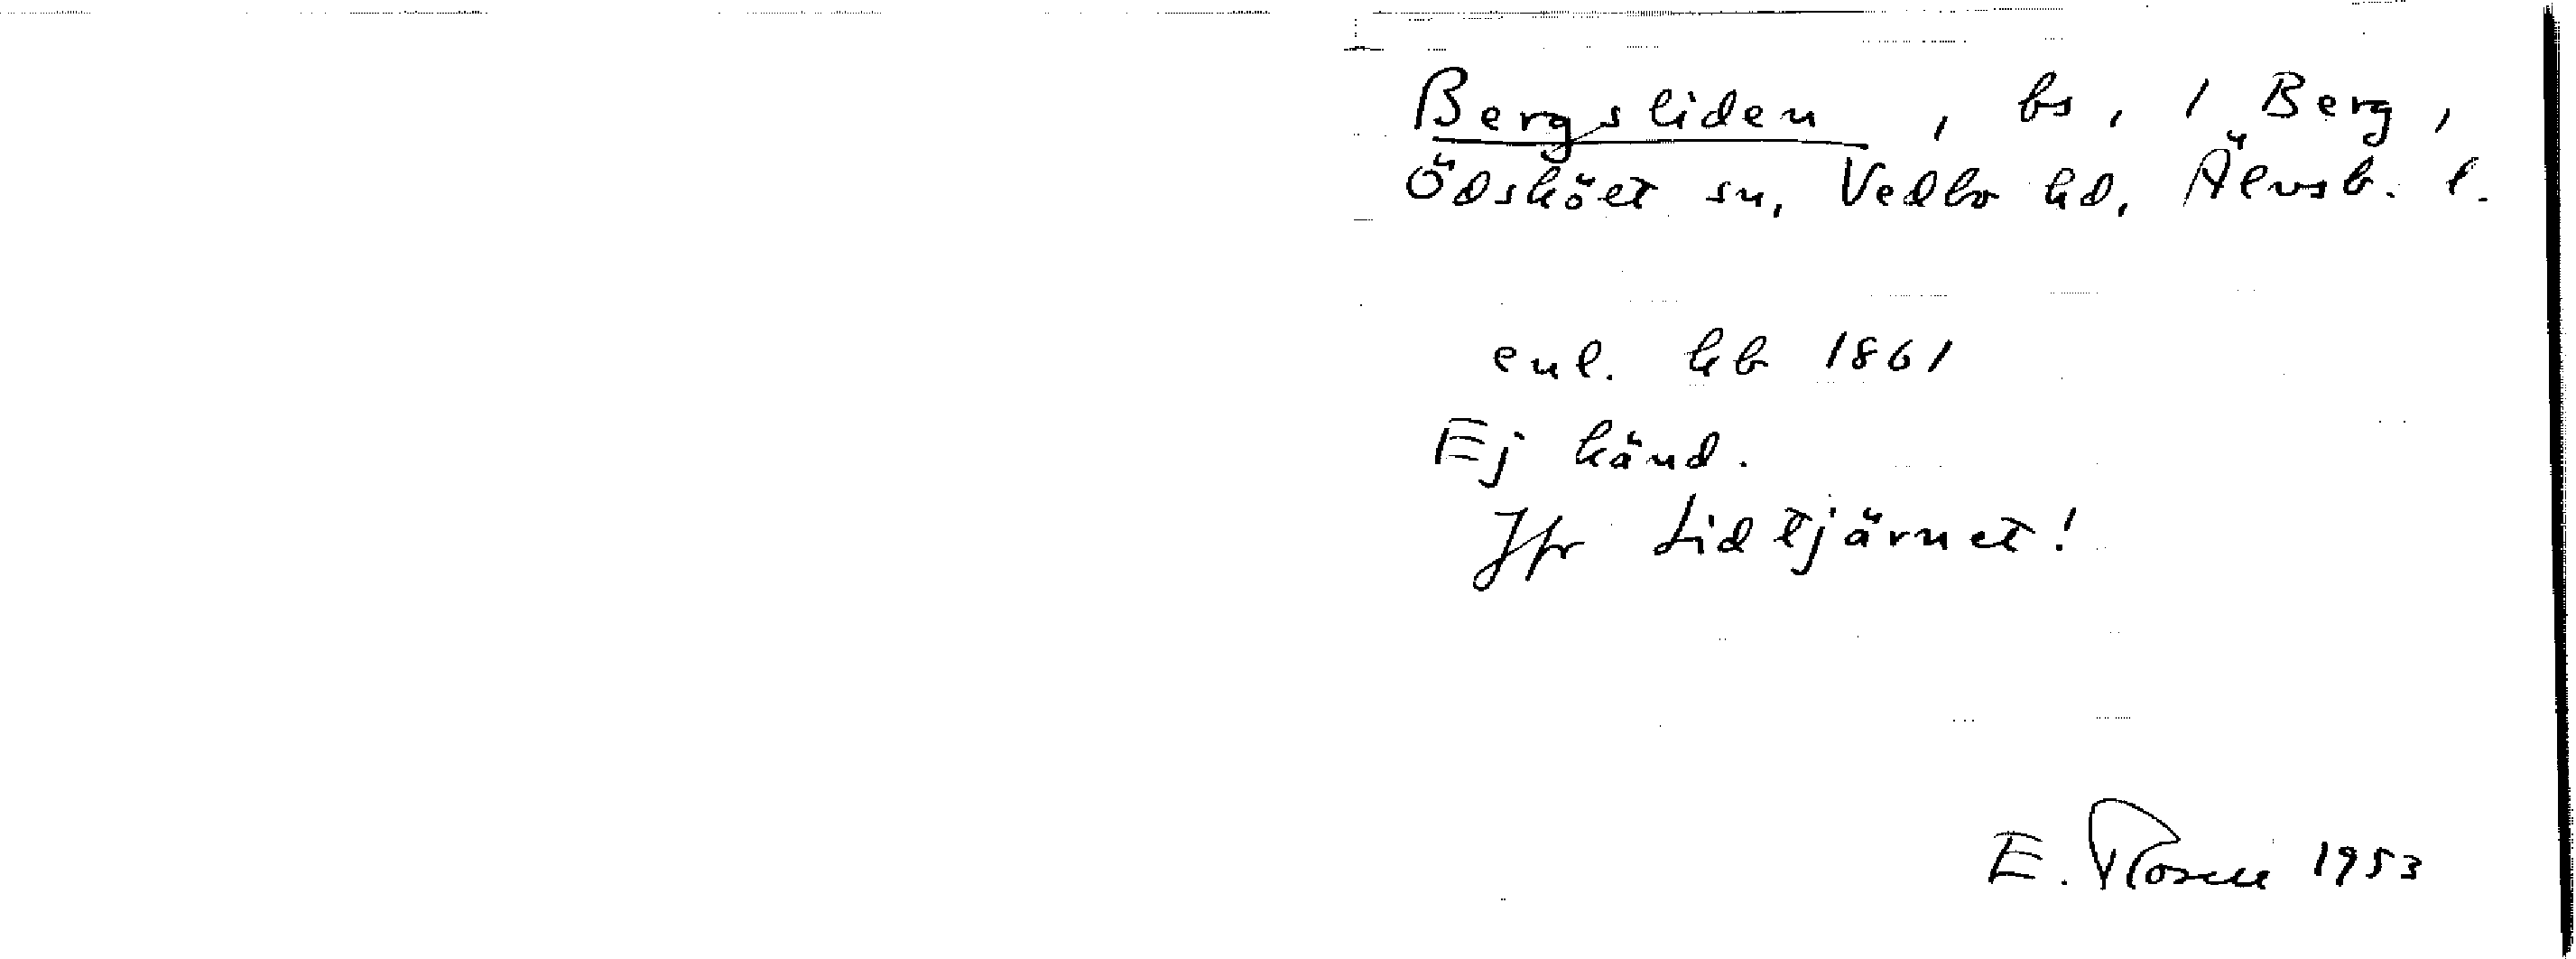 Bergsliden, bs, 1 Berg,
Ödskölt sn, Vedbo hd, Älvsb. l.
enl. hb 1861
Ej känd.
Jfr Lidtjärnet!
E. 1953